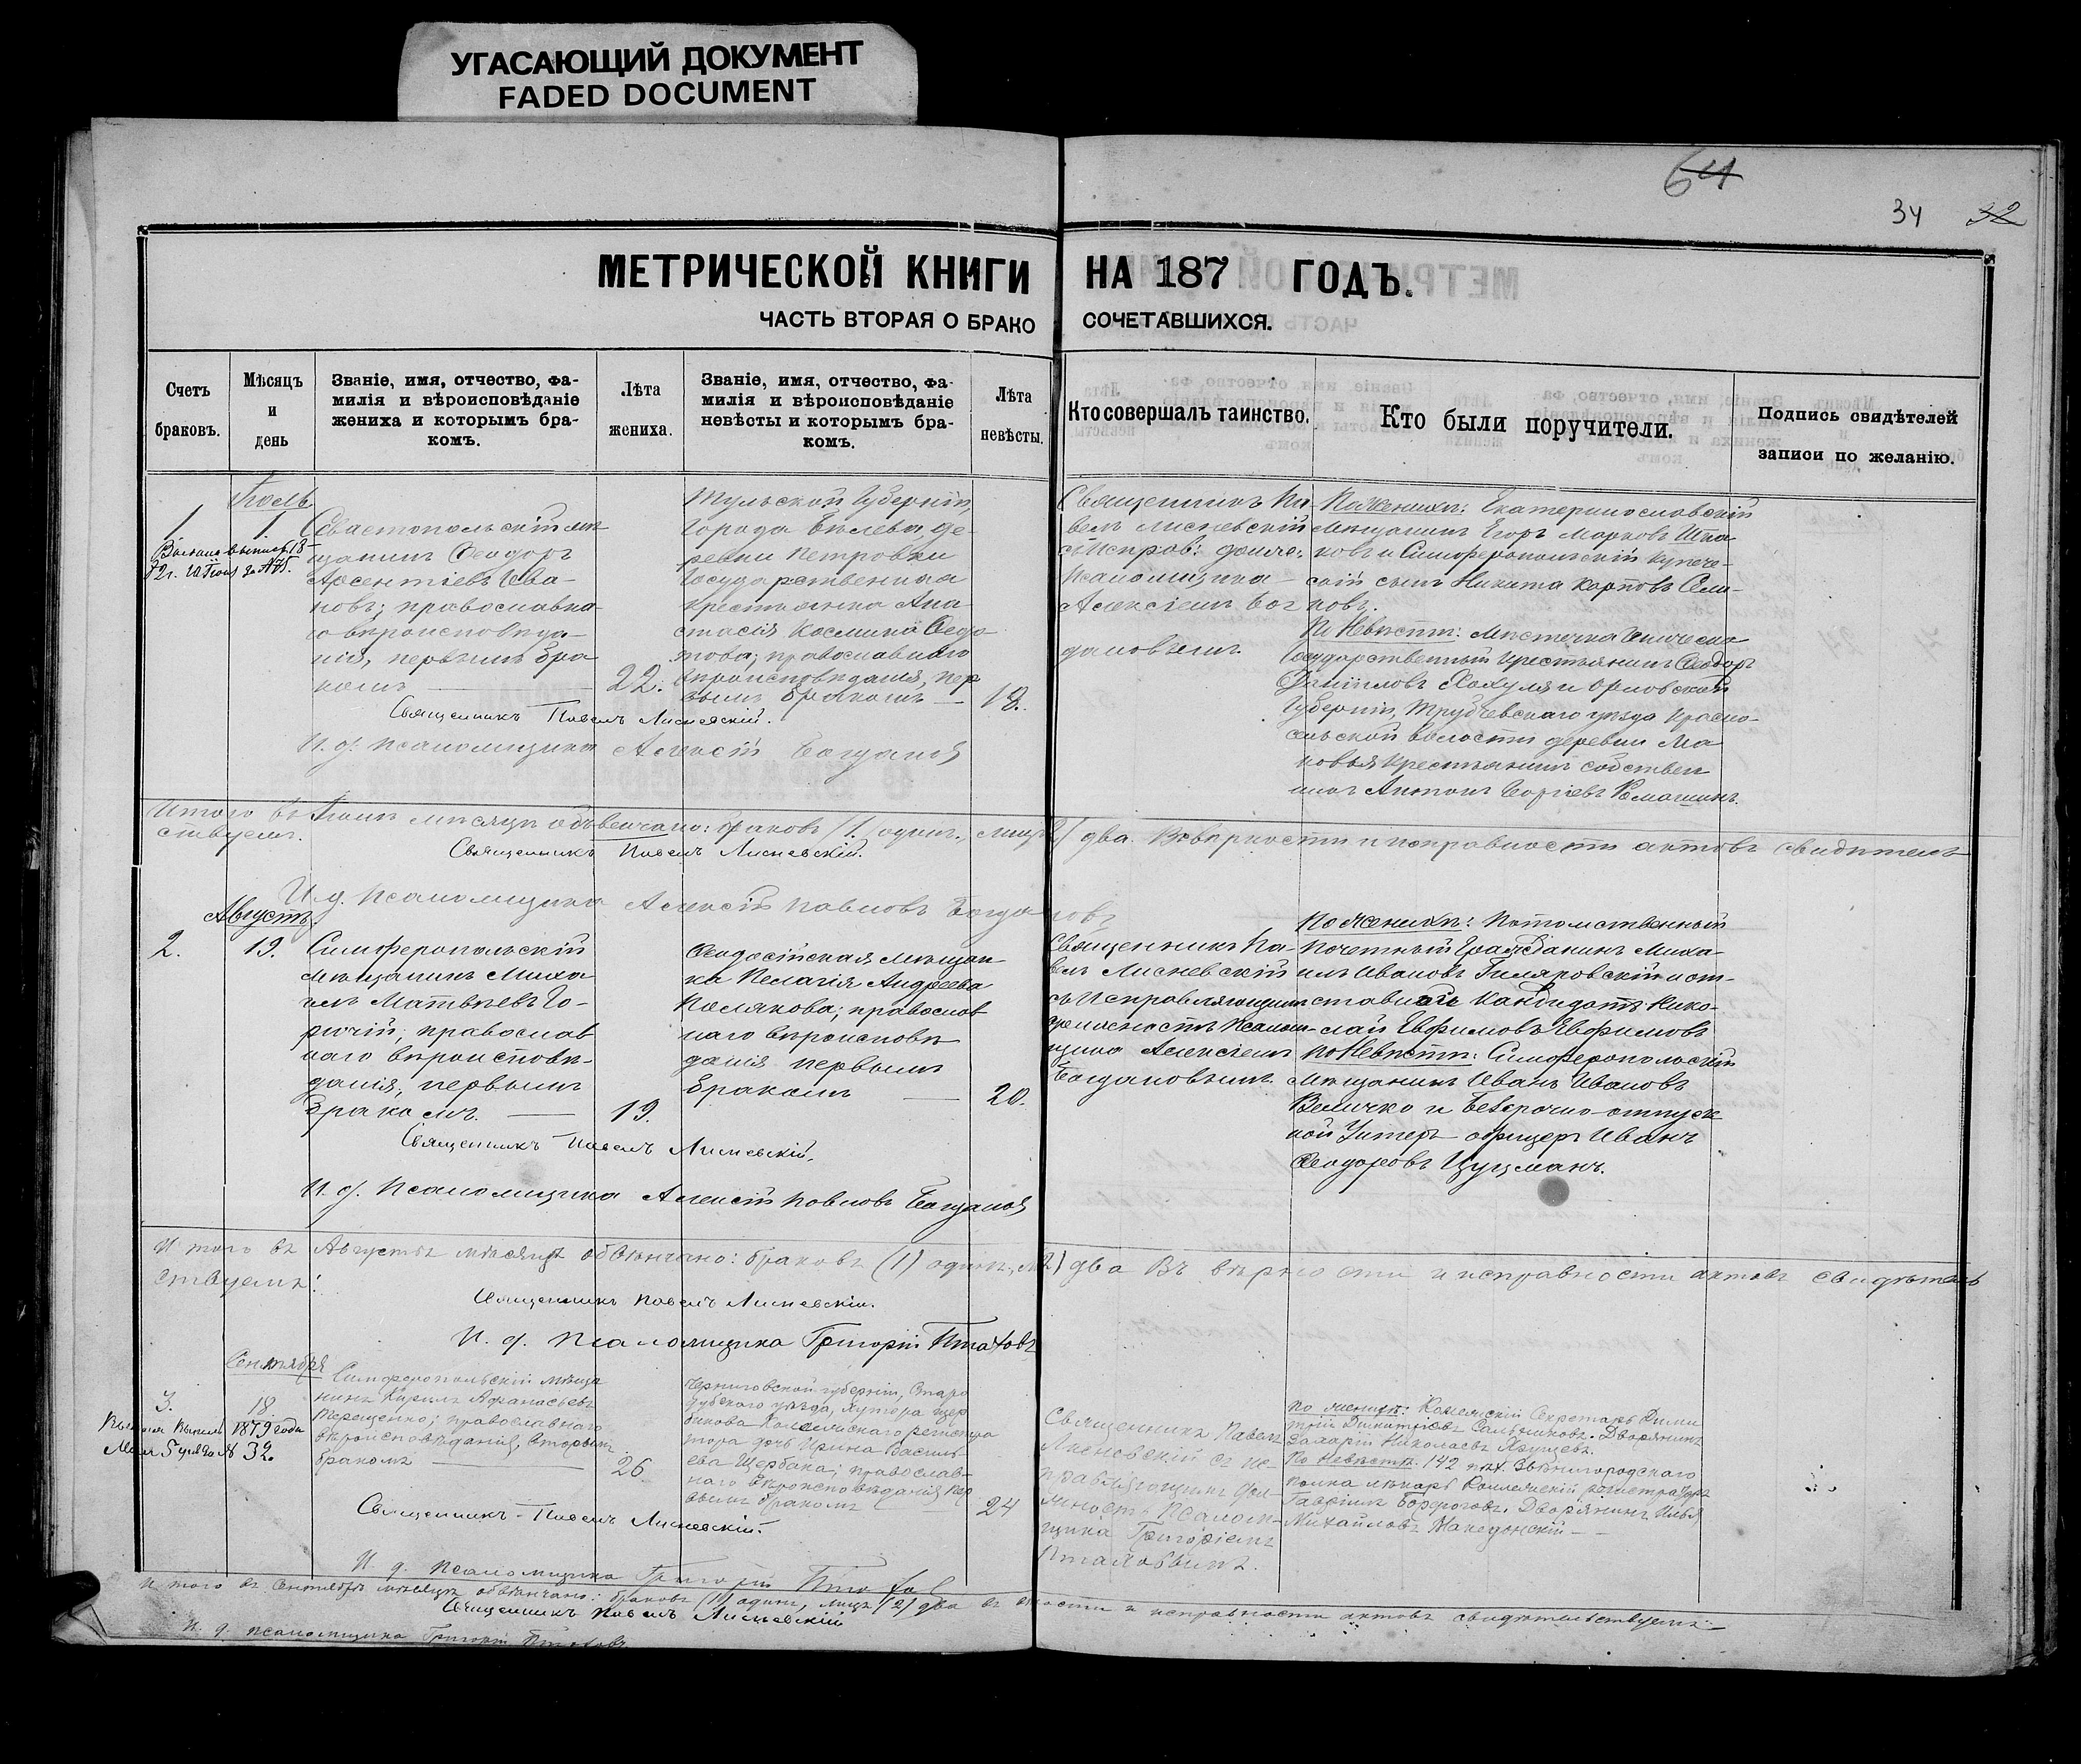 УГАСАЮЩИЙ ДОКУМЕНТ
FADED DOCUMENT
64
34 32
МЕТРИЧЕСКОЙ КНИГИ НА 187 ГОДЪ.
ЧАСТЬ ВТОРАЯ О БРАКОСОЧЕТАВШИХСЯ.
Счетъ
браковъ.
Мѣсяцъ
и
день
Званіе, имя, отчество, фа-
милія и вѣроисповѣданіе
жениха и которымъ бра-
комъ.
Лѣта
жениха.
Званіе, имя, отчество, фа-
милія и вѣроисповѣданіе
невѣсты и которымъ бра-
комъ.
Лѣта
невѣсты.
Кто совершалъ таинство.
Кто были поручители.
Подпись свидѣтелей
записи по желанію.
1
1
Севастопольскій мѣ
щанинъ Ѳеодоръ
Арсентіевъ Ива-
новъ; православна
го вѣроисповѣда-
нія, первымъ бра
комъ
22.
Тульской Губерніи,
города Бѣлева, де-
ревни Петровки
Государственная
крестьянка Ана
стасія Космина Ѳедо
това; православнаго
вѣроисповѣданія, пер
вымъ бракомъ
18.
Священникъ Па
велъ Лисневскій
с Исправ: должн:
Псаломщика
Алексіемъ Бог
дановымъ.
По Женихѣ: Екатеринославскій
Мѣщанинъ Егоръ Марковъ
ковъ и Симферопольскій купече-
скій сынъ Никита Карповъ Сели-
новъ.
По Невѣстѣ: Мѣстечка Геническа
Государственный крестьянинъ Ѳеодоръ
Даниловъ и Орловской
Губерніи, Трубчевскаго уѣзда Красно-
сельской волости деревни Ма
ковья крестьянинъ собствен
никъ Антонъ Ромашинъ.
Священникъ Павелъ Лисневскій.
И. д. Псаломщика Алексій Богданов
Итого въ Іюнѣ мѣсяцѣ обвенчано: браковъ (1) одинъ, лицъ 2) два. Въ вѣрности и исправности актовъ свидѣтель
ствуемъ.
Священникъ Павелъ Лисневскій.
И.д. Псаломщика Алексій Павловъ Богдановъ
Августъ.
2.
19.
Симферопольскій
мѣщанинъ Миха
илъ Матвѣевъ Го-
ричій, православ
наго вѣроисповѣ-
данія, первымъ
бракомъ.
19.
Ѳеодосійская мѣщан
ка Пелагія Андреева
Полякова; православ
наго вѣроисповѣ
данія первымъ
бракомъ
20.
Священникъ Па-
велъ Лисневскій
съ Исправляющимъ
должность Псалом-
щика Алексіемъ
Богдановымъ.
По Женихѣ: Потомственный
Почетный Гражданинъ Миха-
илъ Ивановъ Гиляровскій и от-
ставной Кандидатъ Нико-
лай Евфимовъ Евфимовъ
по Невѣстѣ: Симферопольскій
Мѣщанинъ Иванъ Ивановъ
Величко и Безсрочно-отпуск
ной Унтеръ-офицеръ Иванъ
Ѳеодоровъ Цуцманъ.
Священникъ Павелъ Лисневскій.
И. д. Псаломщика Алексій Павловъ Богданов
И того въ Августѣ мѣсяцѣ обвѣнчано: браковъ (1) одинъ, л 2) два Въ вѣрности и исправности актовъ свидѣтель
ствуемъ:
Священникъ Павелъ Лисневскій.
И. д. Псаломщика Григорій Птаховъ
Сентября
3.
18
1879 года
Мая 5 дня за № 32.
Симферопольскій мѣща
нинъ Кирилъ Афанасьевъ
Терещенко; православнаго
вѣроисповѣданія, вторымъ
бракомъ
26
Черниговской губерніи, Старо
дубскаго уѣзда, Хутора Щер
бакова Коллежскаго регистра
тора дочь Ирина Василь
ева Щербака; православ-
наго вѣроисповѣданія пер
вымъ бракомъ
24
Священникъ Павелъ
Лисневскій съ ис-
правляющимъ дол
жность Псалом-
щика Григоріемъ
Птаховымъ.
По женихѣ: Колежскій Секретарь Дими
трій Димитріевъ Дворянинъ
Захарій Николаевъ Язущевъ.
По Невѣстѣ. 142 пѣх. Звѣнигородскаго
полка лекарь Коллежскій регистраторъ
Гавріилъ Дворянинъ Илья
Михайловъ Македонскій
Священникъ Павелъ Лисневскій.
И д. Псаломщика Григорій Птахов
И того въ Сентябрѣ мѣсяцѣ обвѣнчано: браковъ (1) одинъ, лицъ (2) два въ вѣрности и исправности актовъ свидѣтельствуемъ:
Священникъ Павелъ Лисневскій
И. д. псаломщика Григорій Птаховъ